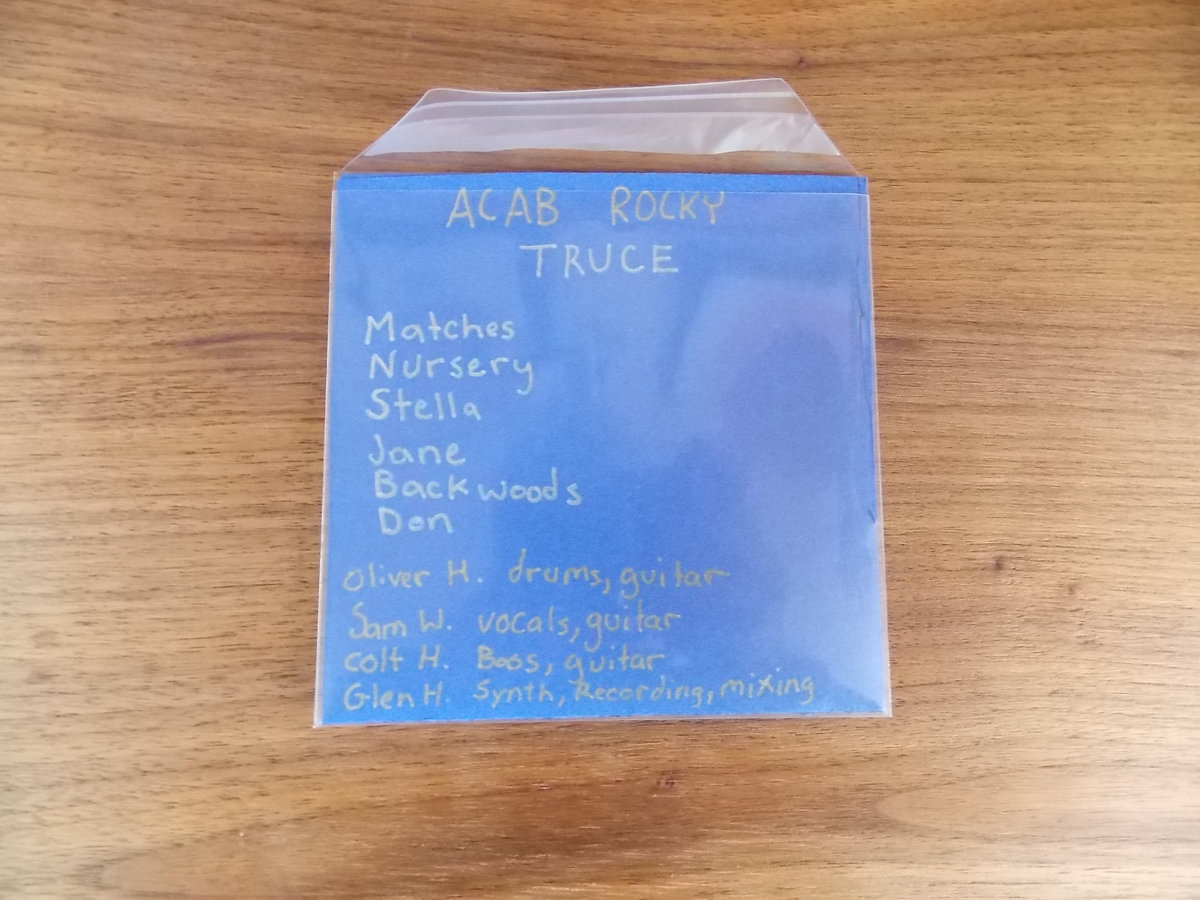 ACAB ROCKY
TRUCE
Matches
Nursery
Stella
Jane
Backwoods
Don
Oliver H. drums, guitar
Sam W. vocals, guitar
Colt H. Bass, guitar
Glen H. Synth, Recording, mixing